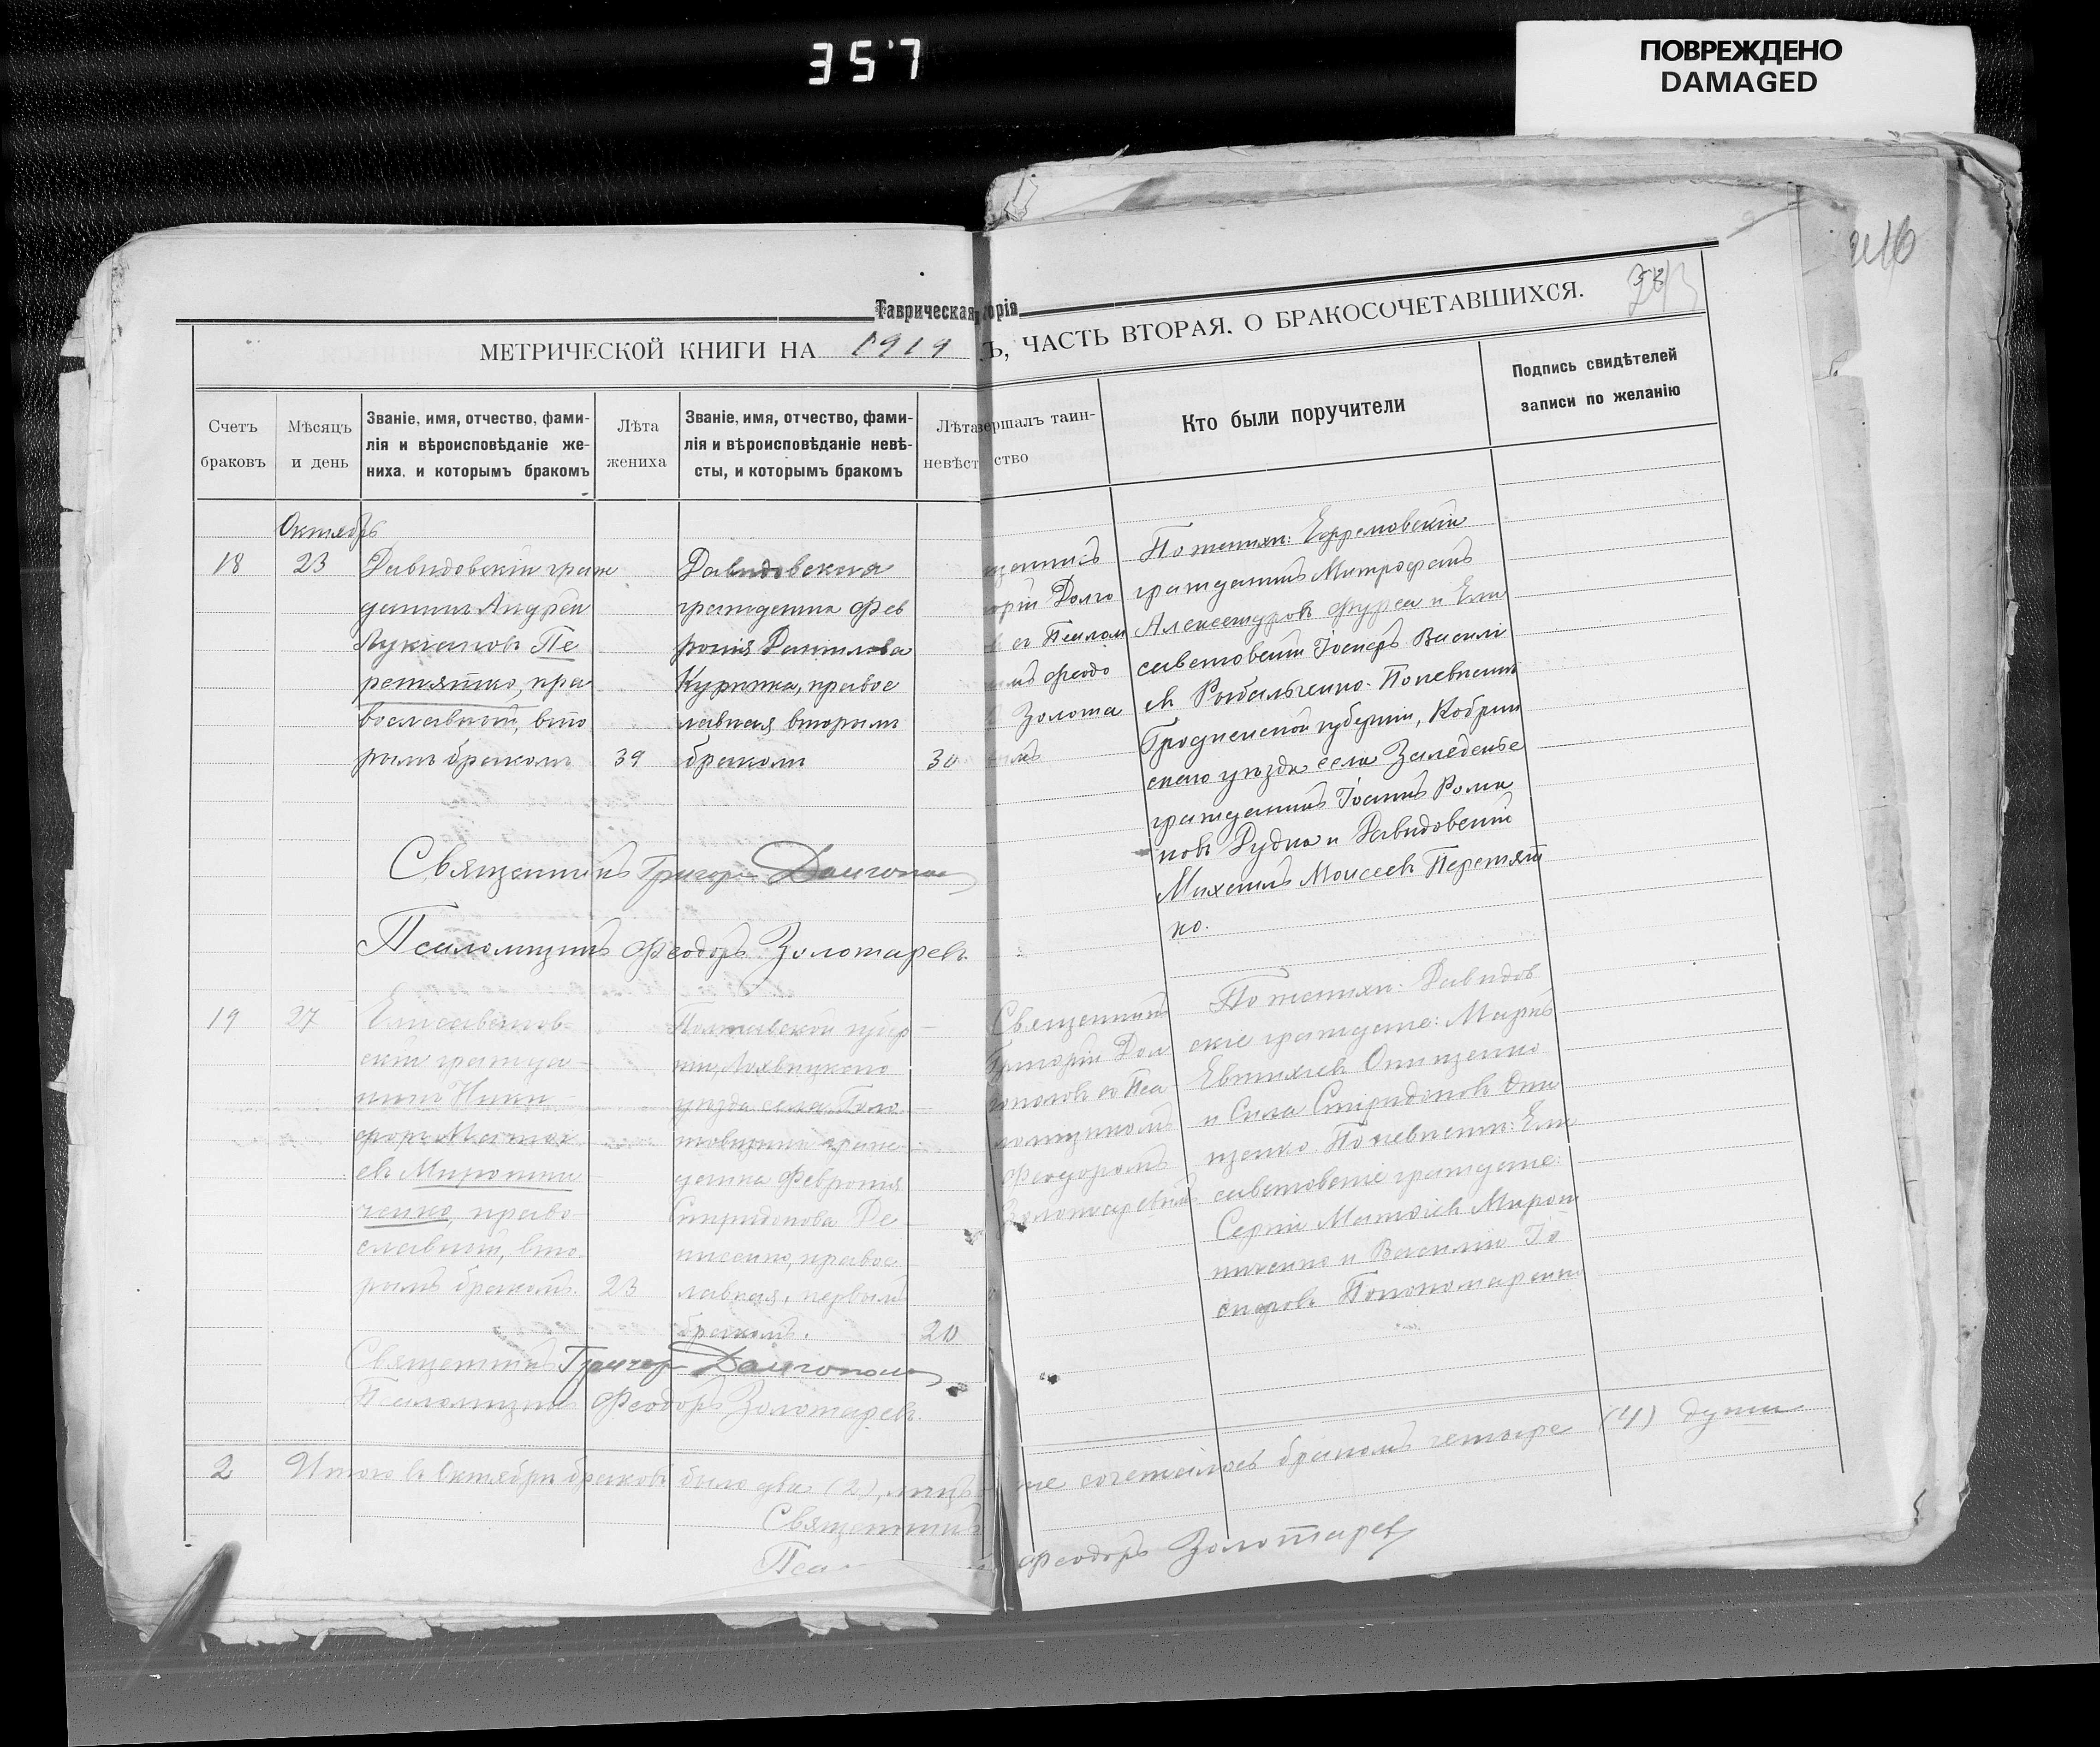 357
ПОВРЕЖДЕНО
DAMAGED
Таврическая
торія
МЕТРИЧЕСКОЙ КНИГИ НА 1919
Ъ, ЧАСТЬ ВТОРАЯ, О БРАКОСОЧЕТАВШИХСЯ.
Счетъ
браковъ
Мѣсяцъ
и день
Званіе, имя, отчество, фами-
лія и вѣроисповѣданіе же-
ниха, и которымъ бракомъ
Лѣта
жениха
Званіе, имя, отчество, фами-
лія и вѣроисповѣданіе невѣ-
сты, и которымъ бракомъ
Лѣта
невѣст
ершалъ таин-
ство
Кто были поручители
Подпись свидѣтелей
записи по желанію
Октябрь
18
23
Давидовскій граж
данинъ Андрей
Лукіановъ Пе
ретятко, пра
вославный, вто
рымъ бракомъ
39
Давидовская
гражданка Фев
ронія Данилова
правос
лавная вторымъ
бракомъ
30
щенникъ
орій Долго
ъ съ Псалом
Феодо
Золота
По женихѣ: Ефремовскій
гражданинъ Митрофанъ
Александровъ Фурса и Ели
саветовскій Іосифъ Василі
евъ Рыбальченко. По невѣстѣ
Гродненской губерніи, Кобрин
скаго уѣзда села
гражданинъ Іоаннъ Рома
новъ Рудка и Давидовскій
Михаилъ Моисеевъ Перетят
ко.
Священникъ Григорій Долгополов
Псаломщикъ Феодоръ Золотаревъ
19
27
Елисаветов-
скій гражда-
нинъ Ники-
форъ Матѳі
евъ Мирошни
ченко, право-
славный, вто-
рымъ бракомъ.
23
Полтавской губер-
ніи, Лохвицкаго
уѣзда села
граж-
данка Февронія
Спиридонова Де-
нисенко, правос
лавная, первымъ
бракомъ.
20
Священникъ
Григорій Дол
гополовъ съ Пса
ломщикомъ
Феодоромъ
Золотаревымъ
По женихѣ: Давидов
скіе граждане: Маркъ
Евтихіевъ Онищенко
и Сила Спиридоновъ Они
щенко. По невѣстѣ: Ели
саветовскіе граждане:
Сергій Матѳіевъ Мирош
ниченко и Василій Іо
сифовъ Пономаренко
Священникъ Григор Долгополов
Псаломщикъ Феодоръ Золотаревъ.
2
Итого въ Октябрѣ браковъ было два (2), лицъ
же сочеталось бракомъ четыре (4) души
Священникъ
Пса
Феодоръ Золотарев